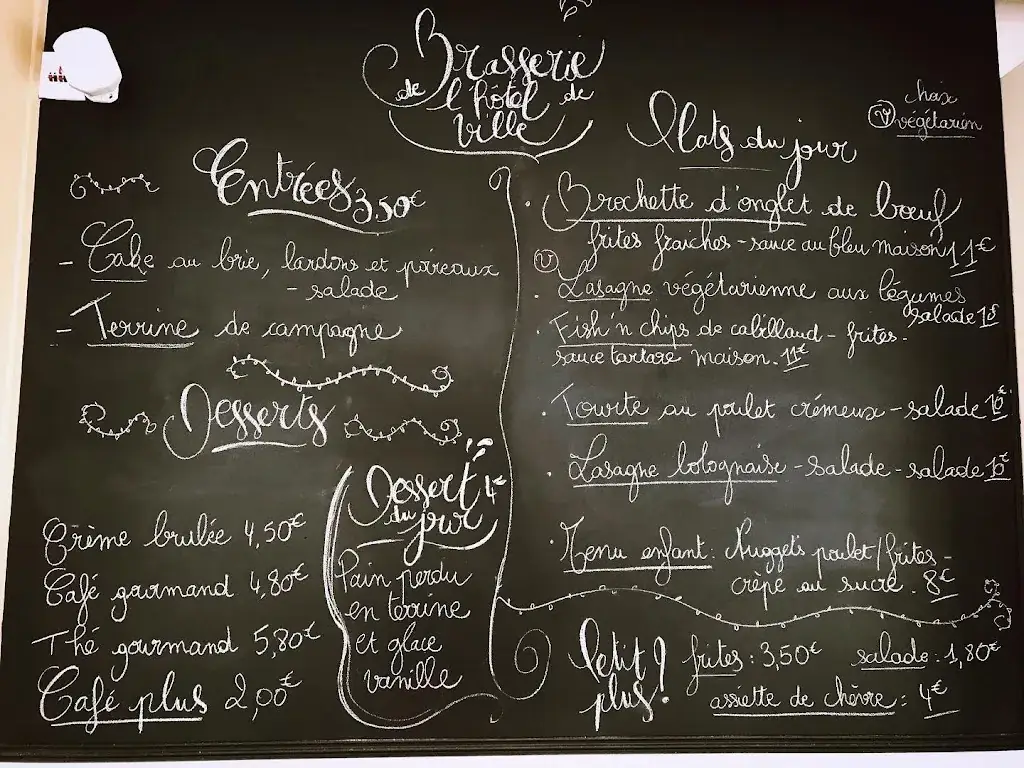 Brasserie
de l'hôtel de
ville
Entrées 3,50€
- Cake au brie, lardons et poireaux
- salade
- Terrine de campagne
Desserts
Crème brulée 4,50€
Café gourmand 4,80€
Thé gourmand 5,80€
Café plus 2,00€
Dessert 4€
du jour
Pain perdu
en terrine
et glace
vanille
Plats du jour
choix
(V) végétarien
· Brochette d'onglet de bœuf
frites fraiches - sauce au bleu maison 11€
(V)
· Lasagne végétarienne aux légumes
salade 10
· Fish'n chips de cabillaud - frites -
sauce tartare maison. 11€
· Tourte au poulet crémeux - salade 10€
· Lasagne bolognaise - salade - salade 10€
· Menu enfant: Nuggets poulet/frites -
crêpe au sucre. 8€
Petit
plus!
frites : 3,50€ salade : 1,80€
assiette de chèvre : 4€